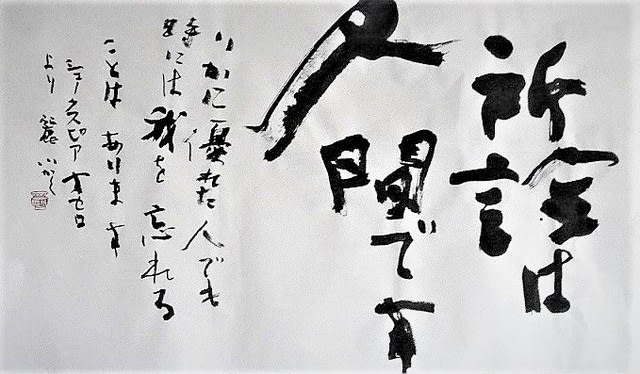 所詮は
人間です
いかに優れた人でも
時には我を忘れる
ことは あります
シェークスピア オセロ
より